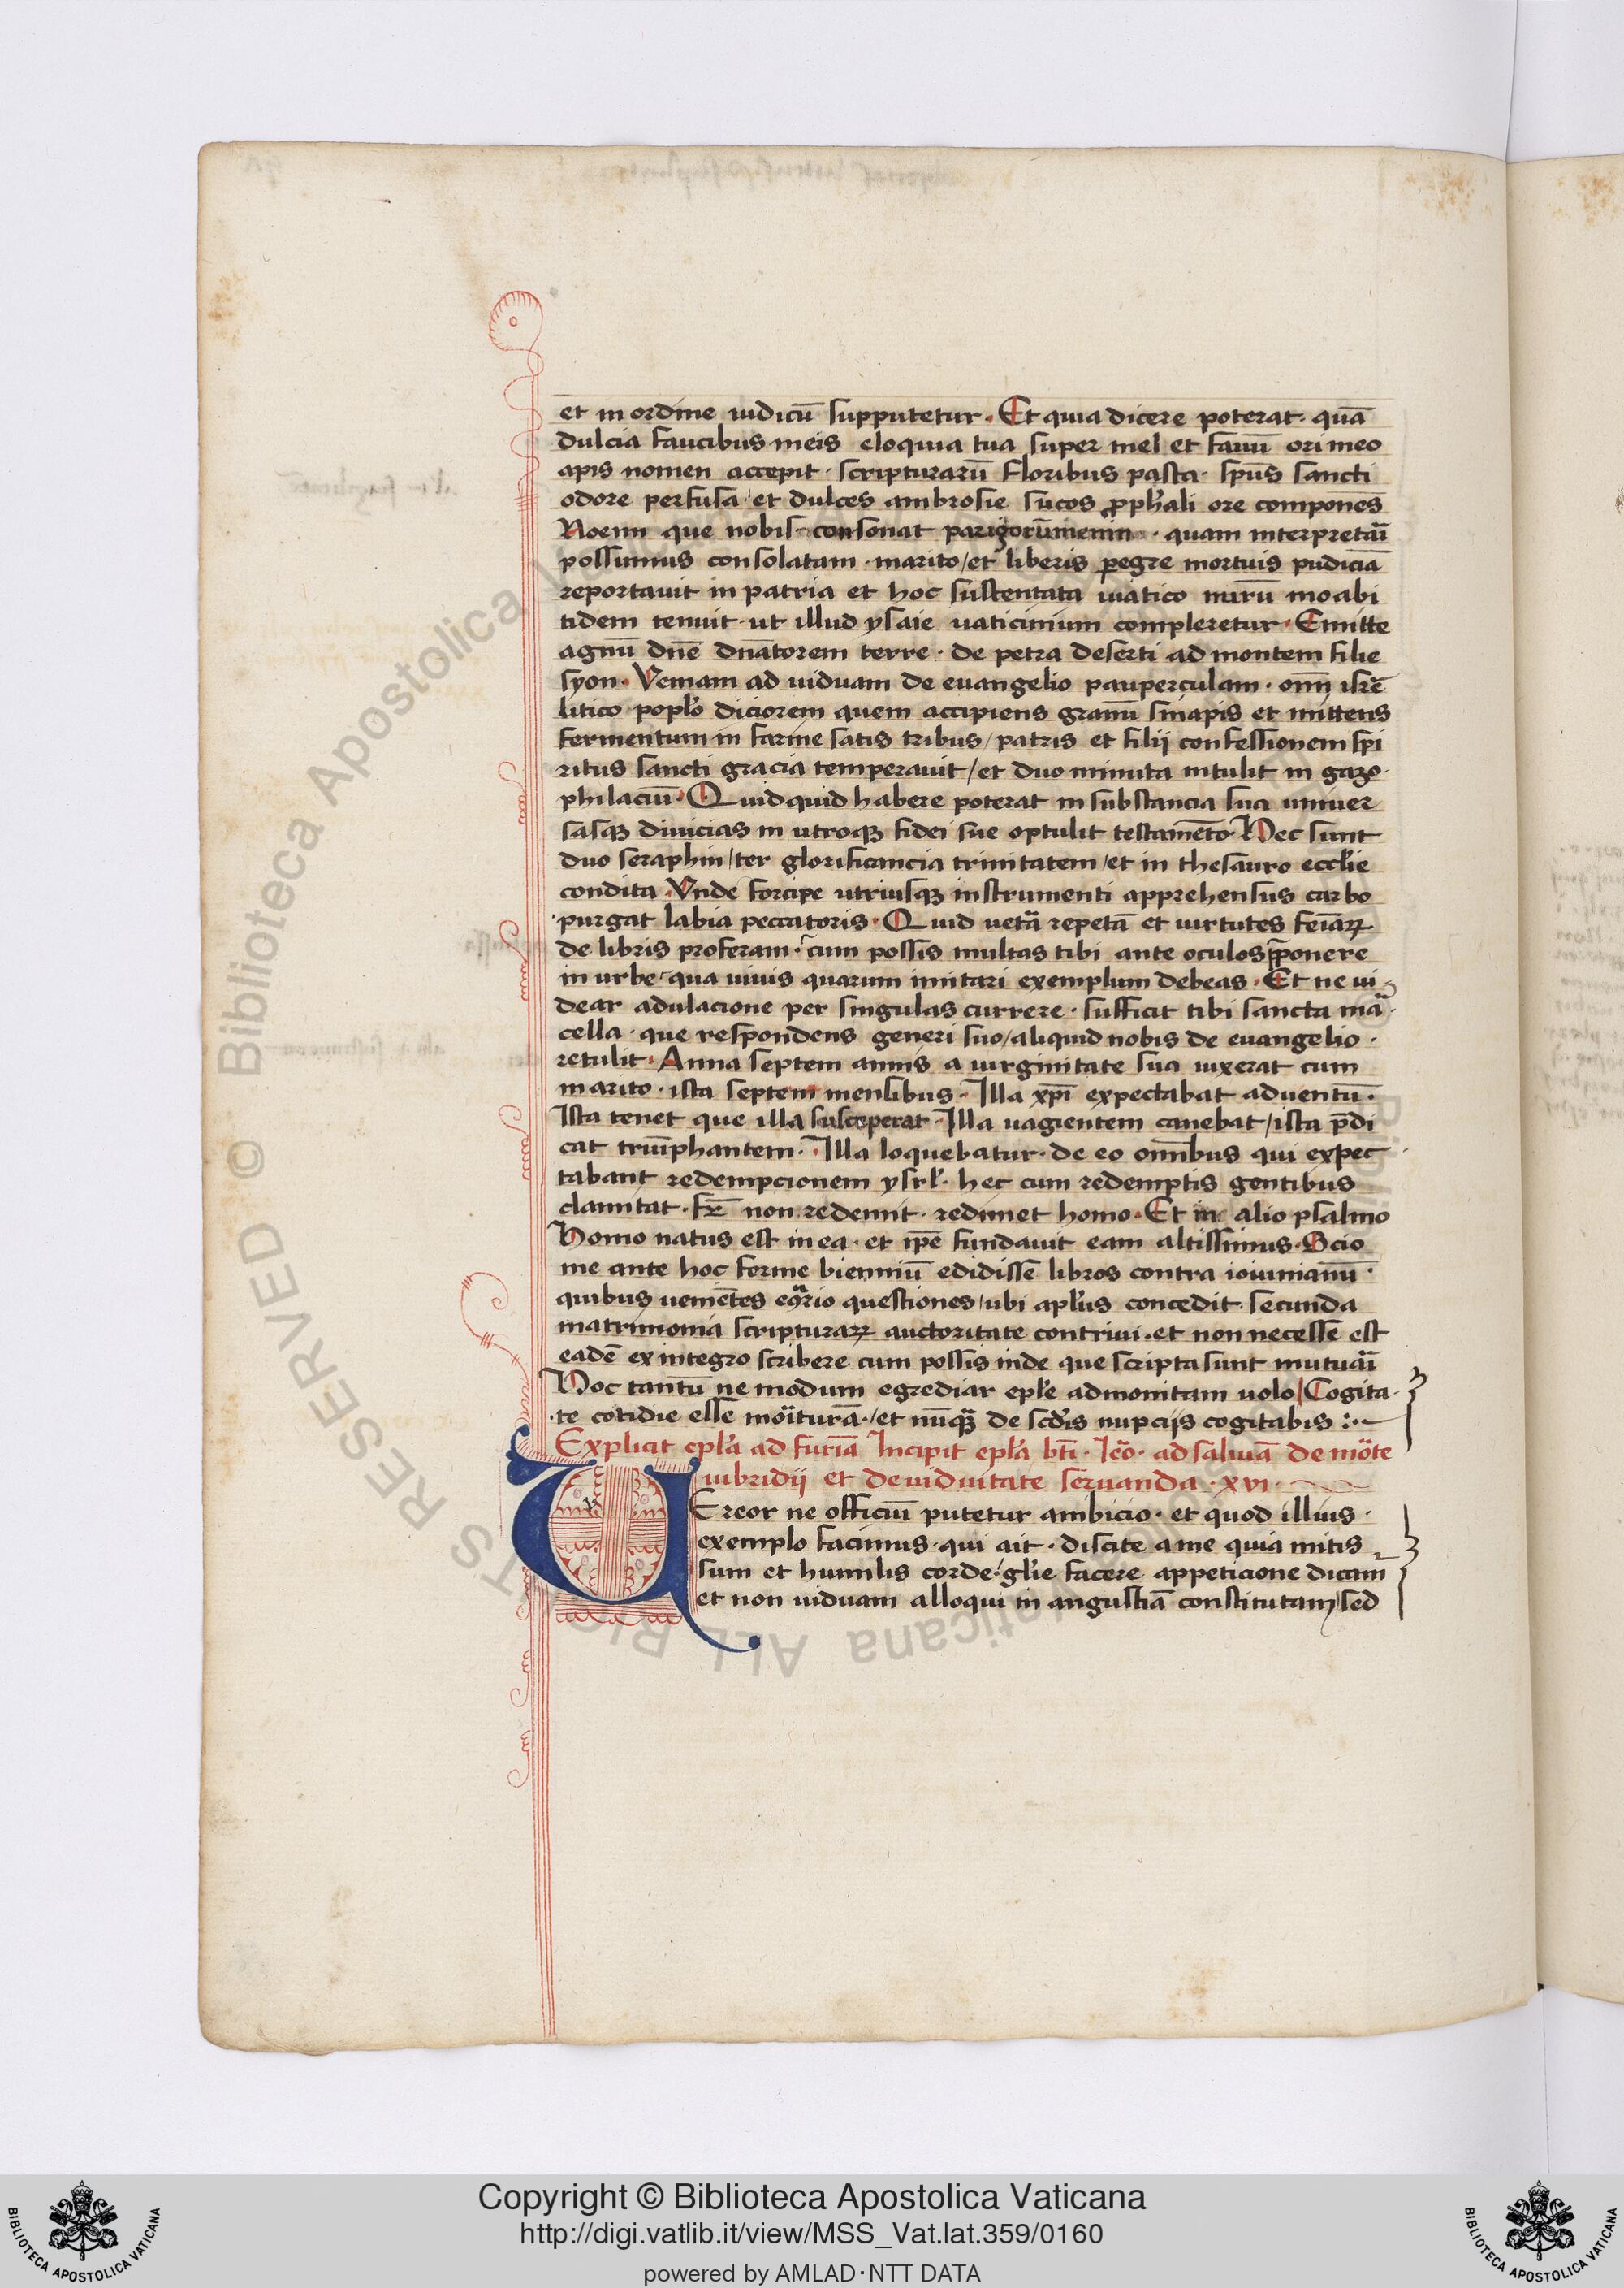 et in ordine iudicū supputetur. Et quia dicere poterat. quā
dulcia faucibus meis eloquia tua super mel et fauū ori meo
apis nomen accepit. scripturarū floribus pasta. sp̄us sancti
odore perfusa. et dulces ambrosie sucos ꝓph̄ali ore componēs
Noemi que nobis consonat parigorūmenin. quam interpretārī
possumus consolatam. marito/et liberis ꝑegre mortuis pudiciā
reportauit in patria et hoc sustentata uiatico nurū moabi
tidem tenuit. ut illud ysaie uaticinium compleretur. Emitte
agnū dn̄e dn̄atorem terre. de petra deserti ad montem filie
syon. Veniam ad uiduam de euangelio pauperculam. om̄i isrē
litico popl̄o diciorem quem accipiens granū sinapis et mittens
fermentum in farine satis tribus/patris et filij confessionem spi
ritus sancti gracia temperauit/et duo minuta intulit in gazo
philaciū. Quidquid habere poterat in substancia sua uniuer
sasqꝫ diuicias in utroqꝫ fidei sue optulit testamēto. Hec sunt
duo seraphin/ter glorificancia trinitatem/et in thesauro eccl̄ie
condita. Vnde forcipe utriusqꝫ instrumenti apprehensus carbo
purgat labia peccatoris. Quid uetā repetā et uirtutes feīarꝝ
de libris proferam. cum possis multas tibi ante oculos p̄ponere
in urbe qua uiuis quarum imitari exemplum debeas. Et ne ui
dear adulacione per singulas currere. sufficit tibi sancta mar
cella. que respondens generi suo/aliquid nobis de euangelio.
retulit. Anna septem annis a uirginitate sua uixerat cum
marito. ista septem mensibus. Illa xp̄i expectabat aduentū.
Ista tenet que illa susceperat. Illa uagientem canebat/ista p̄di
cat triū̄phantem. Illa loquebatur. de eo om̄ibus qui expec
tabant redempcionem ysrl̄. hec cum redemptis gentibus
clamitat. fr̄ non redemit. redimet homo. Et in alio psalmo
Homo natus est in ea. et ip̄e fundauit eam altissimus. Scio
me ante hoc ferme bienniū edidisse libros contra iouinianū.
quibus uenientes eqͣrio questiones/ubi apl̄us concedit. secunda
matrimonia scripturarꝝ auctoritate contriui. et non necesse est
eadē ex integro scribere cum possis inde que scripta sunt mutuārī
Hoc tantū ne modum egrediar epl̄e admonitam uolo/Cogita
te cotidie esse moiturā./et nūqꝫ de scd̄is nupcijs cogitabis :.
Explicit epl̄a ad furiā Incipit epl̄a bt̄i. Ieō. ad saluiā de mōte
iubridij et de uiduitate seruanda. xvi.
UEreor ne officiū putetur ambicio. et quod illius.
exemplo facimus. qui ait. discite a me quia mitis
sum et humilis corde. gl̄ie facere appeticione dicam
et non uiduam alloqui in angustiā constitutam/sed
Copyright © Biblioteca Apostolica Vaticana
http://digi.vatlib.it/view/MSS_Vat.lat.359/0160
powered by AMLAD·NTT DATA
BIBLIOTECA APOSTOLICA VATICANA
BIBLIOTECA APOSTOLICA VATICANA